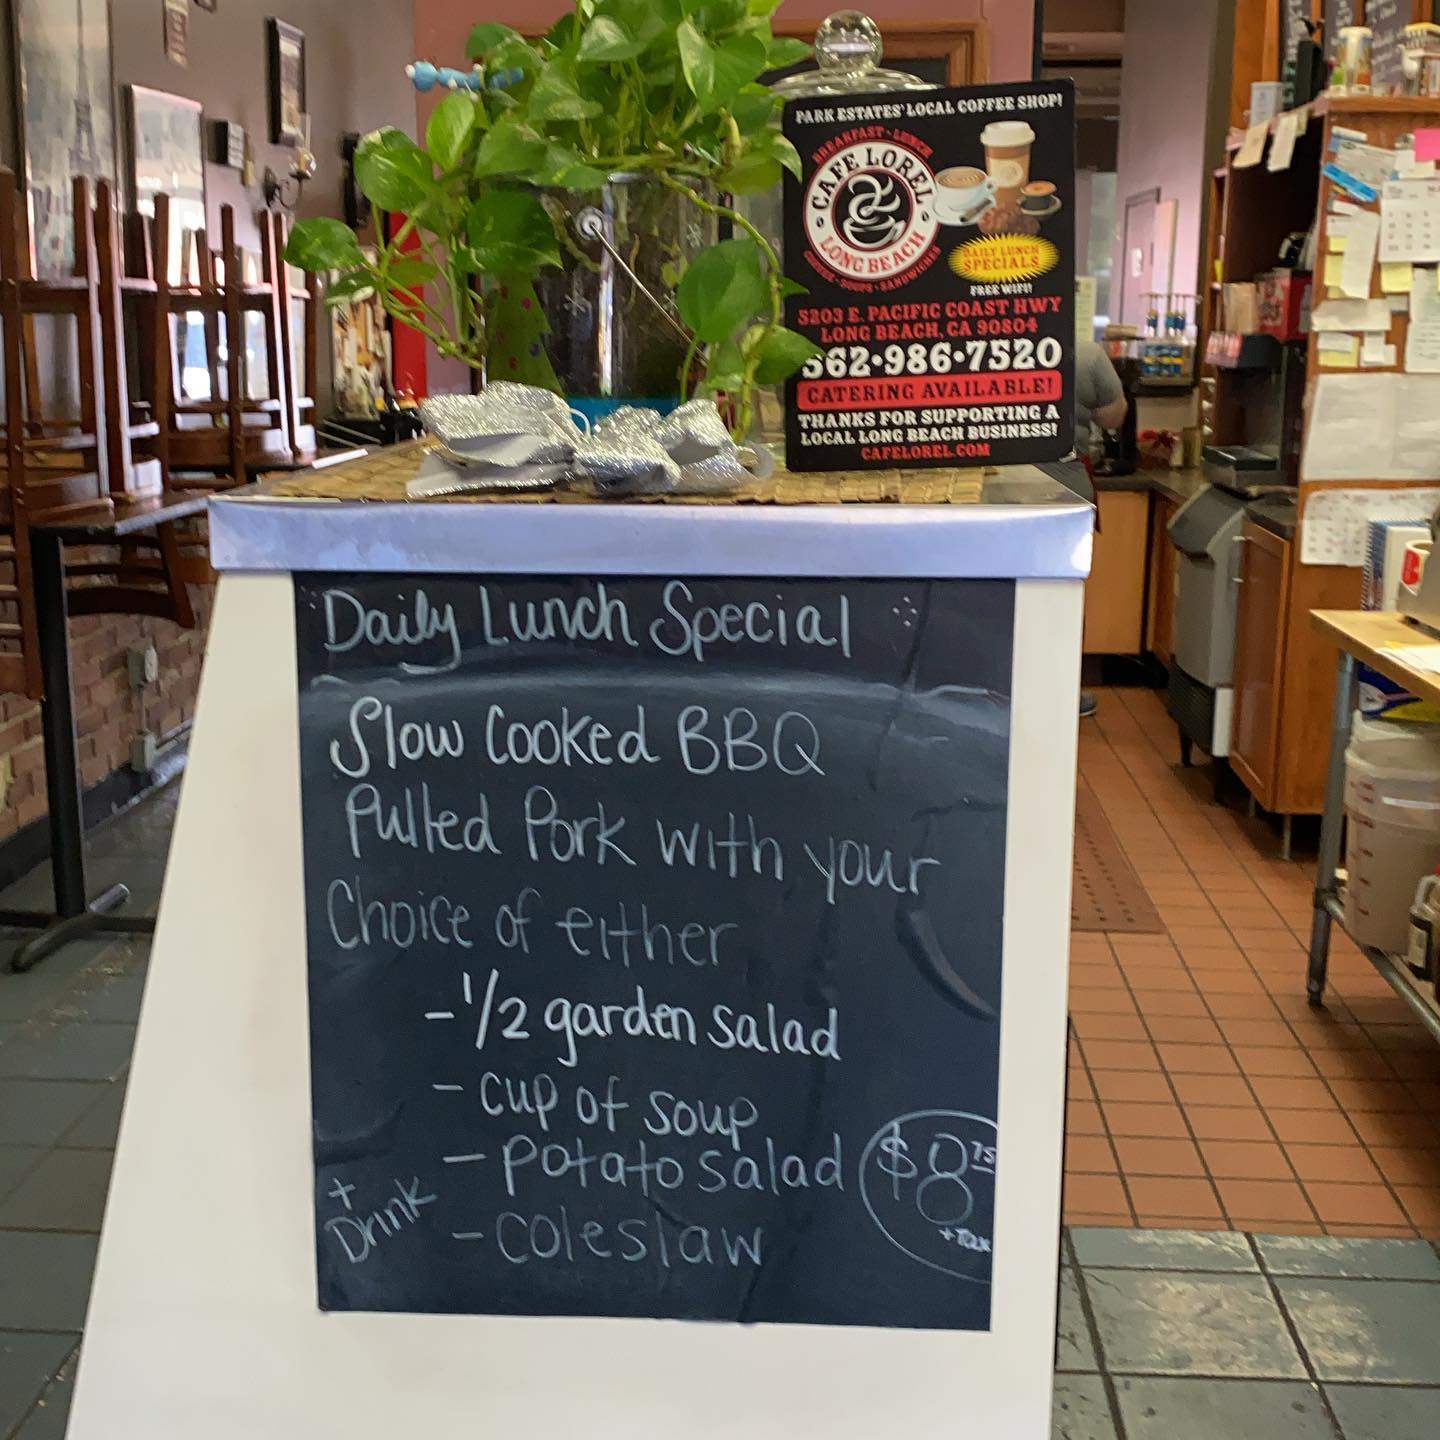 PARK ESTATES' LOCAL COFFEE SHOP!
BREAKFAST • LUNCH
CAFE LOREL
LONG BEACH
COFFEE • SOUPS • SANDWICHES
DAILY LUNCH
SPECIALS
FREE WIFI!
5203 E. PACIFIC COAST HWY
LONG BEACH, CA 90804
562•986•7520
CATERING AVAILABLE!
THANKS FOR SUPPORTING A
LOCAL LONG BEACH BUSINESS!
CAFELOREL.COM
Daily Lunch Special
Slow Cooked BBQ
Pulled Pork with your
Choice of either
- 1/2 garden salad
- cup of soup
- potato salad
- coleslaw
+
Drink
$8 75
+ Tax